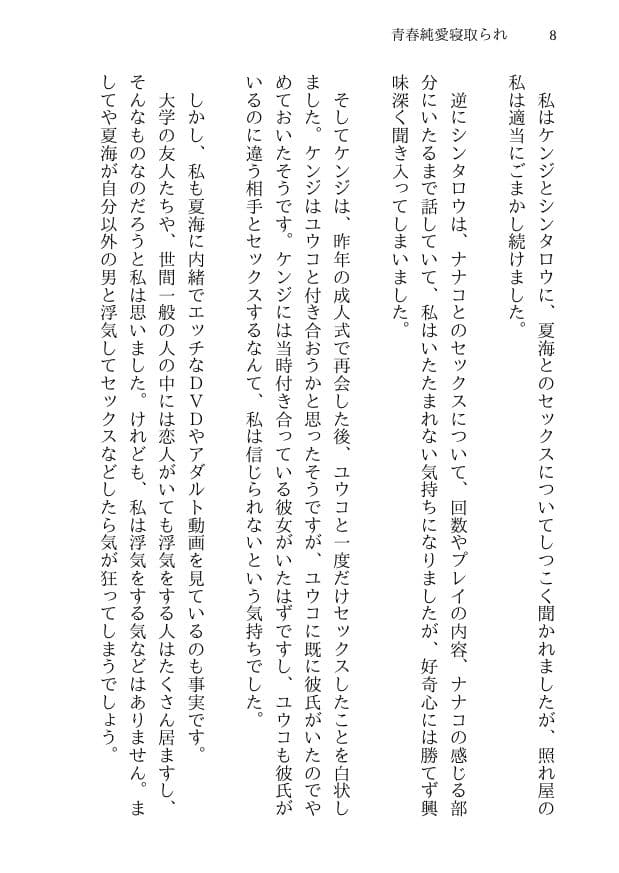 青春純愛寝取られ 8
私はケンジとシンタロウに、夏海とのセックスについてしつこく聞かれましたが、照れ屋の
私は適当にごまかし続けました。
逆にシンタロウは、ナナコとのセックスについて、回数やプレイの内容、ナナコの感じる部
分にいたるまで話していて、私はいたたまれない気持ちになりましたが、好奇心には勝てず興
味深く聞き入ってしまいました。
そしてケンジは、昨年の成人式で再会した後、ユウコと一度だけセックスしたことを白状し
ました。ケンジはユウコと付き合おうかと思ったそうですが、ユウコに既に彼氏がいたのでや
めておいたそうです。ケンジには当時付き合っている彼女がいたはずですし、ユウコも彼氏が
いるのに違う相手とセックスするなんて、私は信じられないという気持ちでした。
しかし、私も夏海に内緒でエッチなＤＶＤやアダルト動画を見ているのも事実です。
大学の友人たちや、世間一般の人の中には恋人がいても浮気をする人はたくさん居ますし、
そんなものなのだろうと私は思いました。けれども、私は浮気をする気などはありません。ま
してや夏海が自分以外の男と浮気してセックスなどしたら気が狂ってしまうでしょう。